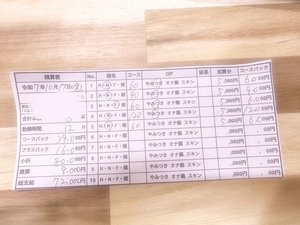 精算表 No. 指名 コース OP 延長 加算分 コースバック
令和7年10月17日(金) 1 H・N・F・姫 60 やみつき オナ鑑 スキン 5,000円 6.000円
2 H・N・F・姫 90 やみつき オナ鑑 スキン 5,000円 9.000円
3 H・N・F・姫 60 やみつき オナ鑑 スキン 5,000円 6.000円
4 H・N・F・姫 120 やみつき オナ鑑 スキン 5,000円 12.000円
勤務時間 12 5 H・N・F・姫 60 やみつき オナ鑑 スキン 5,000円 6.000円
コースバック 6 H・N・F・姫 やみつき オナ鑑 スキン .000円 .000円
プラスバック 7 H・N・F・姫 やみつき オナ鑑 スキン .000円 .00円
小計 80.000円 8 H・N・F・姫 やみつき オナ鑑 スキン .000円 .00円
雑費 8.000円 9 H・N・F・姫 やみつき オナ鑑 スキン .000円 .00円
総支給 72.000円 10 H・N・F・姫 やみつき オナ鑑 スキン .000円 .00円